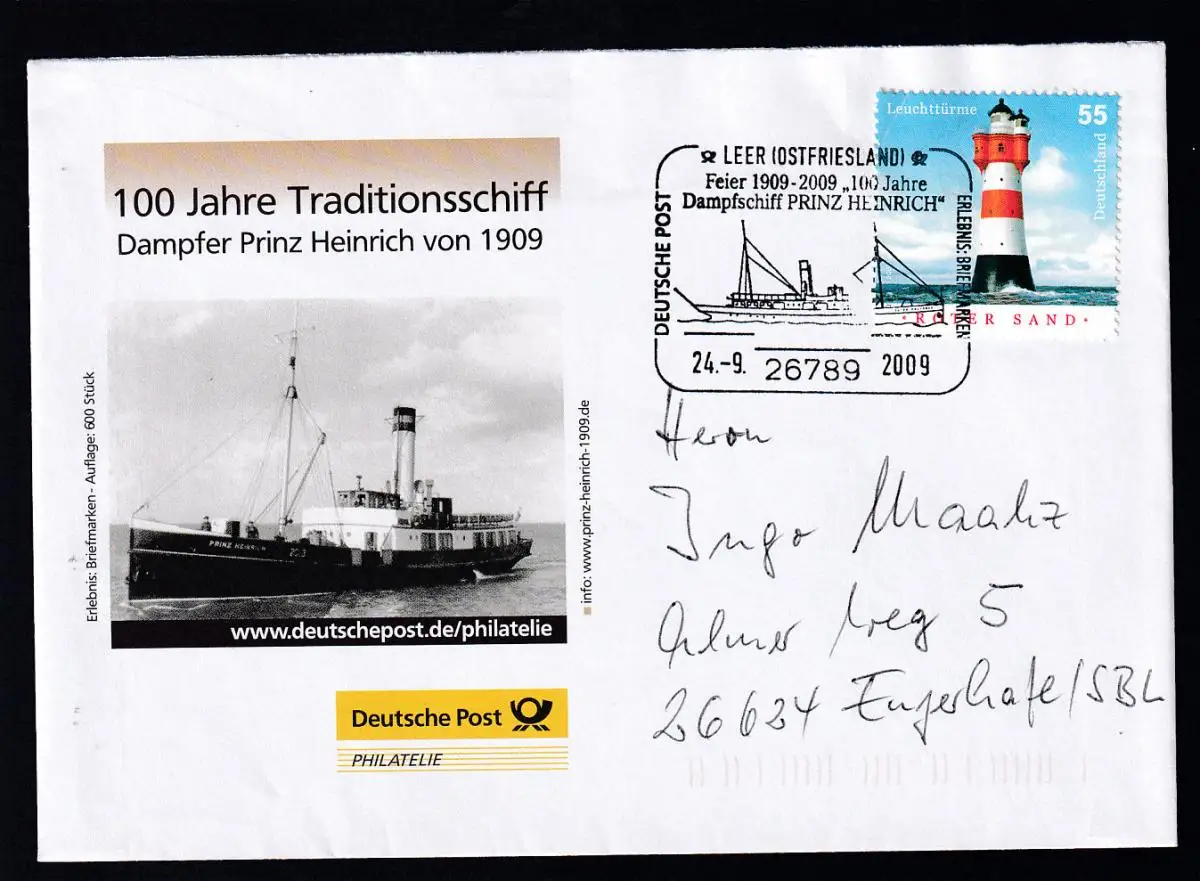 100 Jahre Traditionsschiff
Dampfer Prinz Heinrich von 1909
Erlebnis: Briefmarken - Auflage: 600 Stück
PRINZ HEINRICH
info: www.prinz-heinrich-1909.de
www.deutschepost.de/philatelie
Deutsche Post
PHILATELIE
LEER (OSTFRIESLAND)
Feier 1909-2009 „100 Jahre
Dampfschiff PRINZ HEINRICH“
DEUTSCHE POST
ERLEBNIS: BRIEFMARKEN
24.-9. 26789 2009
Leuchttürme 55
Deutschland
·ROTER SAND·
Herrn
Ingo Maahz
Weg 5
26624 Engerhafe/SBL